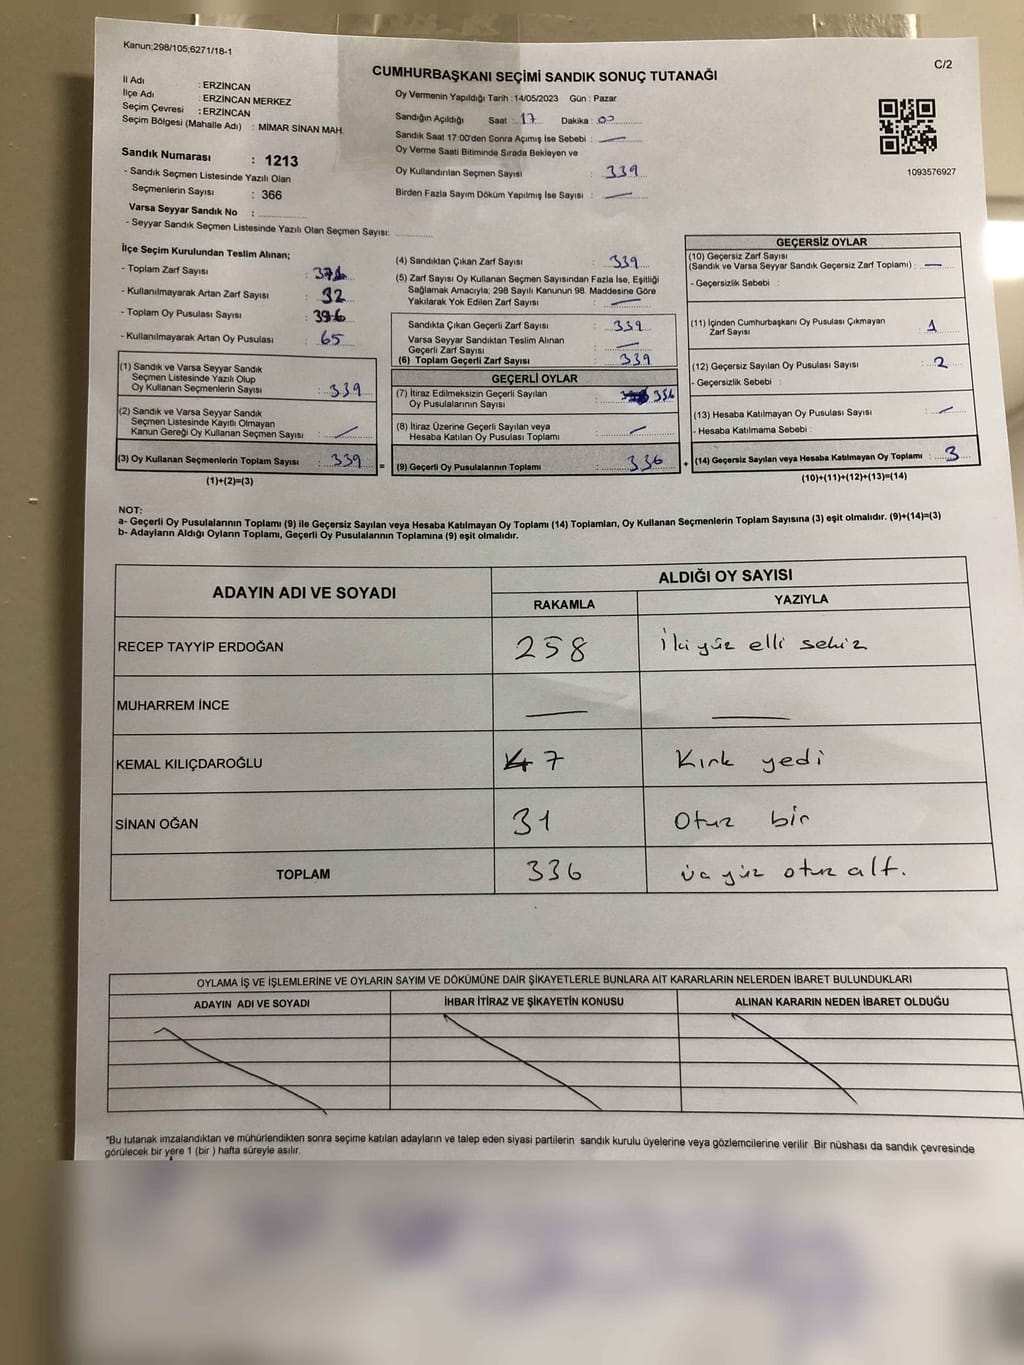 Kanun;298/105;6271/18-1
C/2
CUMHURBAŞKANI SEÇİMİ SANDIK SONUÇ TUTANAĞI
İl Adı : ERZİNCAN
İlçe Adı : ERZİNCAN MERKEZ
Seçim Çevresi : ERZİNCAN
Seçim Bölgesi (Mahalle Adı) : MİMAR SİNAN MAH.
Sandık Numarası : 1213
- Sandık Seçmen Listesinde Yazılı Olan
Seçmenlerin Sayısı : 366
Varsa Seyyar Sandık No :
- Seyyar Sandık Seçmen Listesinde Yazılı Olan Seçmen Sayısı:
Oy Vermenin Yapıldığı Tarih :14/05/2023 Gün : Pazar
Sandığın Açıldığı Saat : 17 Dakika : 00
Sandık Saat 17:00'den Sonra Açımış İse Sebebi : —
Oy Verme Saati Bitiminde Sırada Bekleyen ve
Oy Kullandırılan Seçmen Sayısı : 339
Birden Fazla Sayım Döküm Yapılmış İse Sayısı : —
1093576927
İlçe Seçim Kurulundan Teslim Alınan;
- Toplam Zarf Sayısı :
- Kullanılmayarak Artan Zarf Sayısı : 32
- Toplam Oy Pusulası Sayısı :
- Kullanılmayarak Artan Oy Pusulası : 65
(1) Sandık ve Varsa Seyyar Sandık
Seçmen Listesinde Yazılı Olup
Oy Kullanan Seçmenlerin Sayısı : 339
(2) Sandık ve Varsa Seyyar Sandık
Seçmen Listesinde Kayıtlı Olmayan
Kanun Gereği Oy Kullanan Seçmen Sayısı : —
(3) Oy Kullanan Seçmenlerin Toplam Sayısı : 339 =
(1)+(2)=(3)
(4) Sandıktan Çıkan Zarf Sayısı : 339
(5) Zarf Sayısı Oy Kullanan Seçmen Sayısından Fazla İse, Eşitliği
Sağlamak Amacıyla; 298 Sayılı Kanunun 98. Maddesine Göre
Yakılarak Yok Edilen Zarf Sayısı : —
Sandıkta Çıkan Geçerli Zarf Sayısı : 339
Varsa Seyyar Sandıktan Teslim Alınan
Geçerli Zarf Sayısı : —
(6) Toplam Geçerli Zarf Sayısı : 339
GEÇERLİ OYLAR
(7) İtiraz Edilmeksizin Geçerli Sayılan
Oy Pusulalarının Sayısı : 336
(8) İtiraz Üzerine Geçerli Sayılan veya
Hesaba Katılan Oy Pusulası Toplamı : —
(9) Geçerli Oy Pusulalarının Toplamı : 336 +
GEÇERSİZ OYLAR
(10) Geçersiz Zarf Sayısı
(Sandık ve Varsa Seyyar Sandık Geçersiz Zarf Toplamı) : —
- Geçersizlik Sebebi :
(11) İçinden Cumhurbaşkanı Oy Pusulası Çıkmayan
Zarf Sayısı : 1
(12) Geçersiz Sayılan Oy Pusulası Sayısı : 2
- Geçersizlik Sebebi :
(13) Hesaba Katılmayan Oy Pusulası Sayısı : —
- Hesaba Katılmama Sebebi :
(14) Geçersiz Sayılan veya Hesaba Katılmayan Oy Toplamı : 3
(10)+(11)+(12)+(13)=(14)
NOT:
a- Geçerli Oy Pusulalarının Toplamı (9) ile Geçersiz Sayılan veya Hesaba Katılmayan Oy Toplamı (14) Toplamları, Oy Kullanan Seçmenlerin Toplam Sayısına (3) eşit olmalıdır. (9)+(14)=(3)
b- Adayların Aldığı Oyların Toplamı, Geçerli Oy Pusulalarının Toplamına (9) eşit olmalıdır.
ADAYIN ADI VE SOYADI ALDIĞI OY SAYISI
RAKAMLA YAZIYLA
RECEP TAYYİP ERDOĞAN 258 İki yüz elli sekiz
MUHARREM İNCE — —
KEMAL KILIÇDAROĞLU 47 Kırk yedi
SİNAN OĞAN 31 Otuz bir
TOPLAM 336 üç yüz otuz altı.
OYLAMA İŞ VE İŞLEMLERİNE VE OYLARIN SAYIM VE DÖKÜMÜNE DAİR ŞİKAYETLERLE BUNLARA AİT KARARLARIN NELERDEN İBARET BULUNDUKLARI
ADAYIN ADI VE SOYADI İHBAR İTİRAZ VE ŞİKAYETİN KONUSU ALINAN KARARIN NEDEN İBARET OLDUĞU
*Bu tutanak imzalandıktan ve mühürlendikten sonra seçime katılan adayların ve talep eden siyasi partilerin sandık kurulu üyelerine veya gözlemcilerine verilir Bir nüshası da sandık çevresinde
görülecek bir yere 1 (bir ) hafta süreyle asılır.